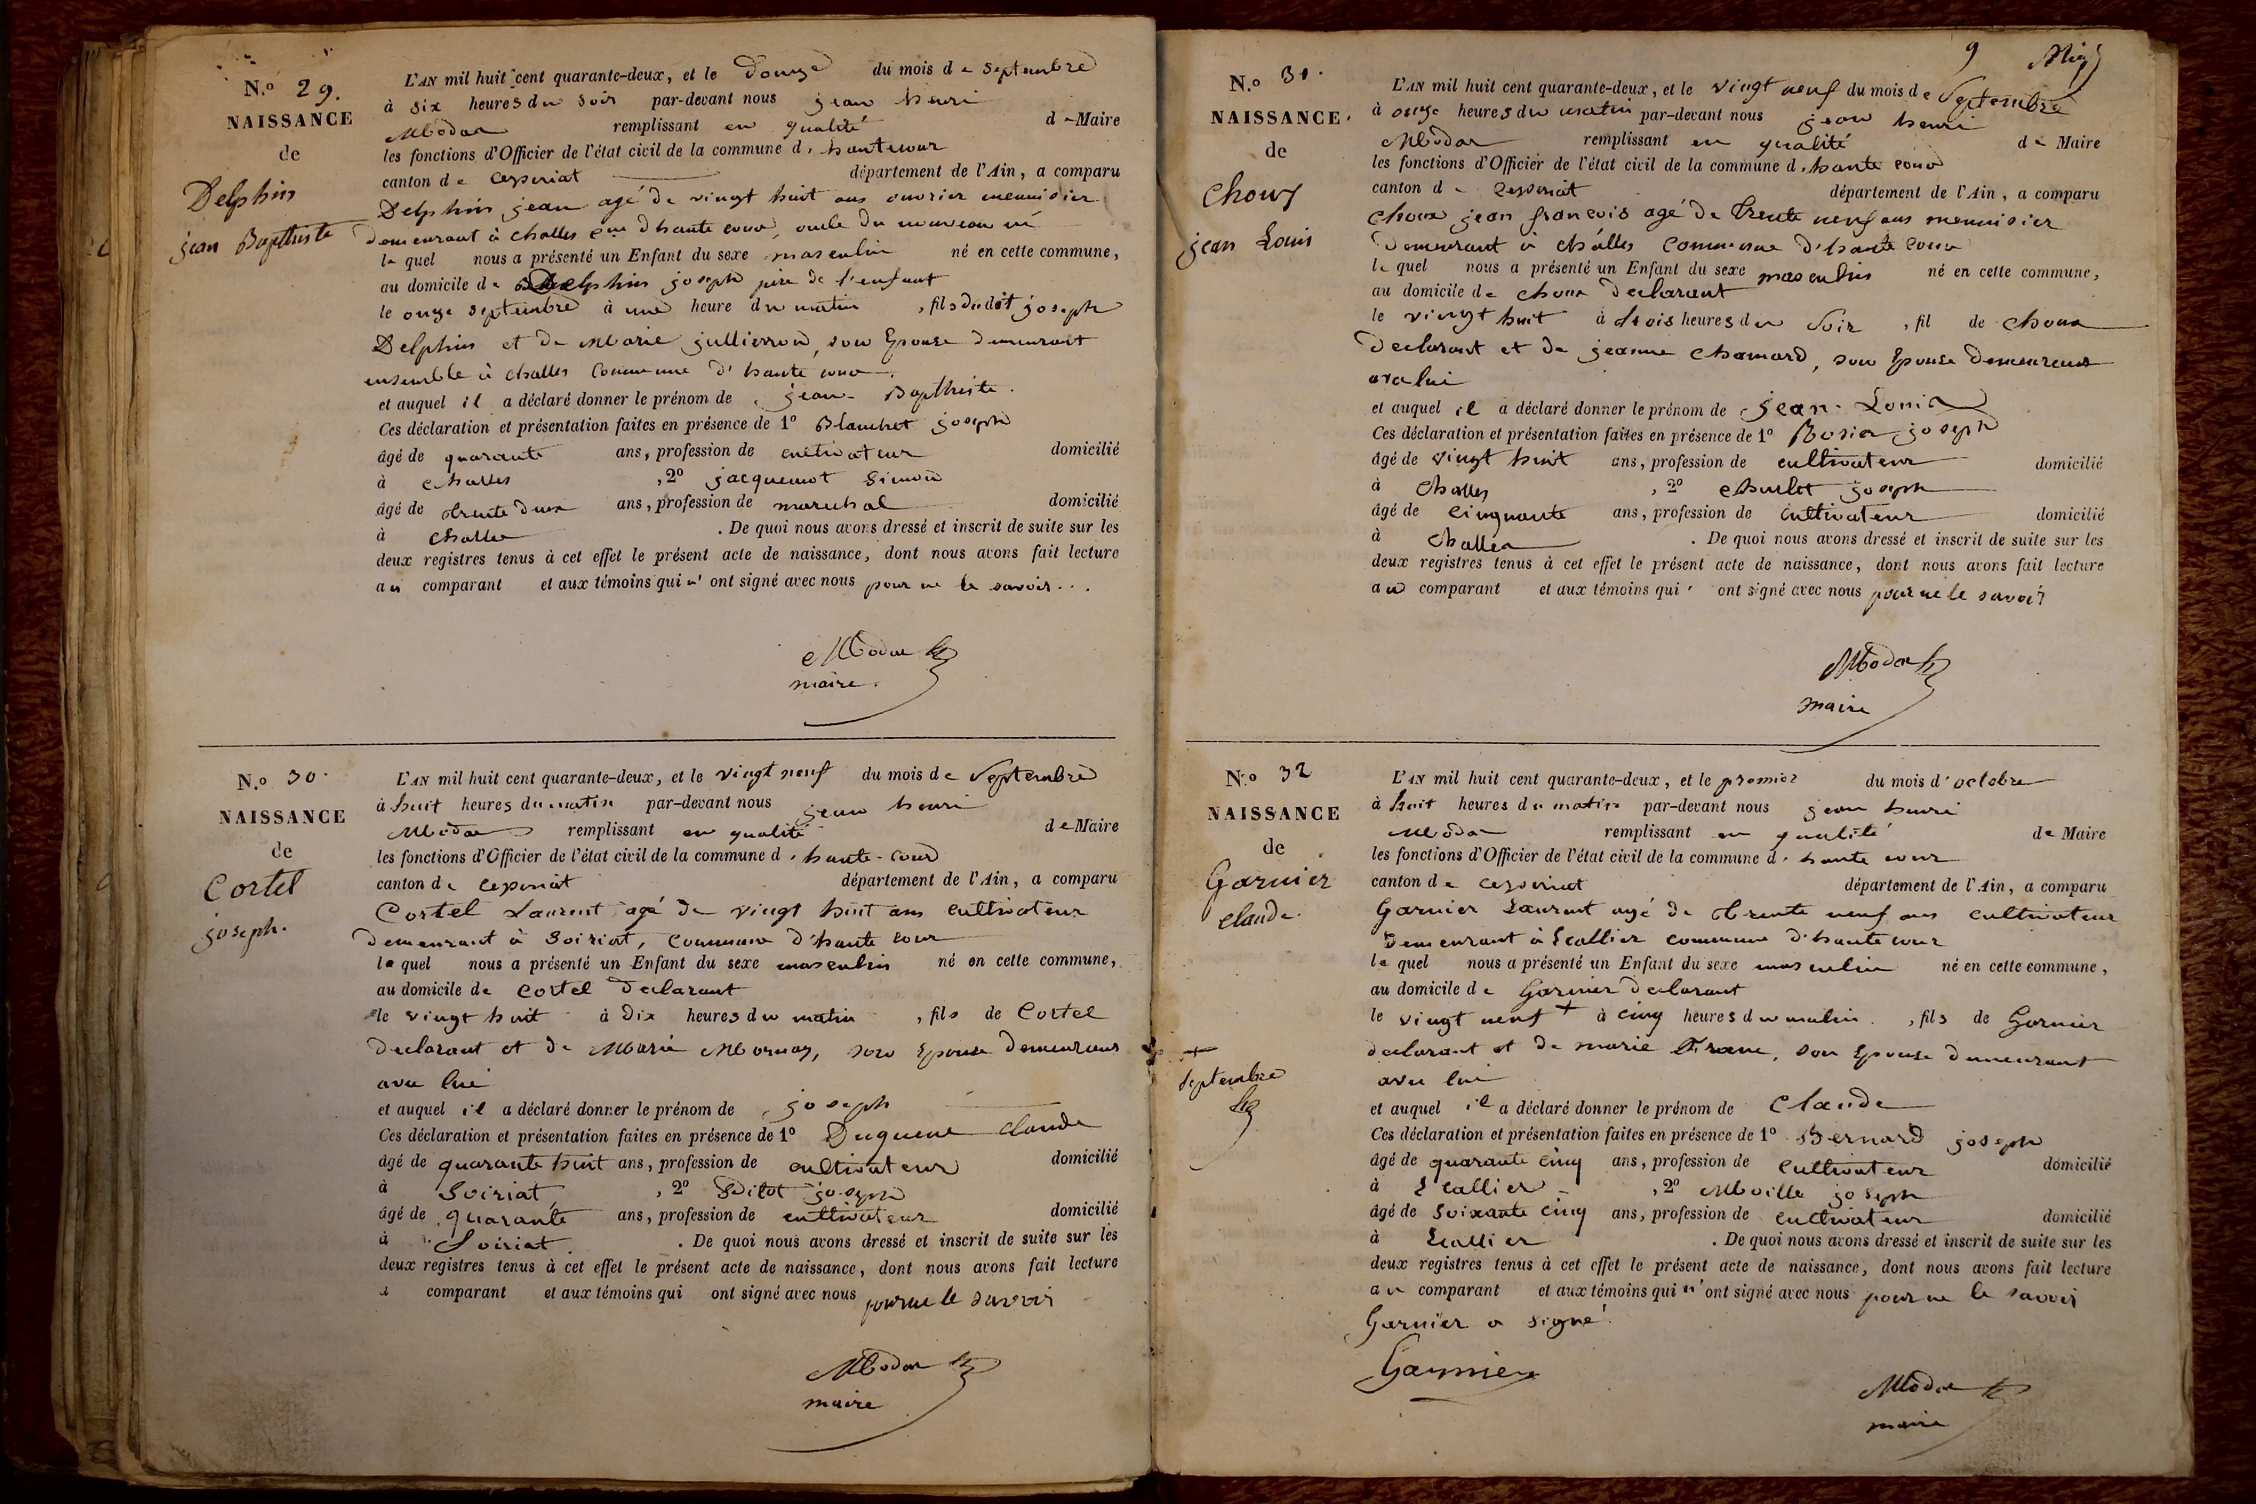 N.o 29.
NAISSANCE
de
Delphin
jean Baptiste
L'AN mil huit cent quarante-deux, et le douze du mois de septembre
à six heures du soir par-devant nous jean henri
Modas remplissant en qualité de Maire
les fonctions d'Officier de l'état civil de la commune d'hautecour
canton de ceyseriat département de l'Ain, a comparu
Delphin jean agé de vingt huit ans ouvrier menuisier
demeurant à challes cne d'haute cour, oncle du nouveau né
lequel nous a présenté un Enfant du sexe masculin né en cette commune,
au domicile de Delphin joseph père de l'enfant
le onze septembre à une heure du matin, fils dudit joseph
Delphin et de Marie jullierron, son Epouse demeurant
ensemble à challes Commune d'haute cour
et auquel il a déclaré donner le prénom de jean-Bapthiste.
Ces déclaration et présentation faites en présence de 1o Blanchet joseph
âgé de quarante ans, profession de cultivateur domicilié
à challes, 2o jacquemot Simon
âgé de trente deux ans, profession de marechal domicilié
à challes. De quoi nous avons dressé et inscrit de suite sur les
deux registres tenus à cet effet le présent acte de naissance, dont nous avons fait lecture
au comparant et aux témoins qui n'ont signé avec nous pour ne le savoir...
Modas
maire.
N.o 30.
NAISSANCE
de
Cortel
joseph.
L'AN mil huit cent quarante-deux, et le vingt neuf du mois de Septembre
à huit heures du matin par-devant nous jean henri
Modas remplissant en qualité de Maire
les fonctions d'Officier de l'état civil de la commune d'haute-cour
canton de ceyseriat département de l'Ain, a comparu
Cortel Laurent agé de vingt huit ans cultivateur
demeurant à Soiriat, Commune d'haute cour
lequel nous a présenté un Enfant du sexe masculin né en cette commune,
au domicile de Cortel Declarant
le vingt huit à dix heures du matin, fils de Cortel
declarant et de Marie Mornay, son Epouse Demeurant
avec lui
et auquel il a déclaré donner le prénom de joseph
Ces déclaration et présentation faites en présence de 1o Duguene Claude
âgé de quarante huit ans, profession de cultivateur domicilié
à Soiriat, 2o joseph
âgé de quarante ans, profession de cultivateur domicilié
à Soiriat. De quoi nous avons dressé et inscrit de suite sur les
deux registres tenus à cet effet le présent acte de naissance, dont nous avons fait lecture
comparant et aux témoins qui ont signé avec nous pour ne le savoir
Modas
maire
9
N.o 31.
NAISSANCE.
de
Choux
jean Louis
L'AN mil huit cent quarante-deux, et le vingt neuf du mois de Septembre
à onze heures du matin par-devant nous jean henri
Modas remplissant en qualité de Maire
les fonctions d'Officier de l'état civil de la commune d'haute cour
canton de Ceyseriat département de l'Ain, a comparu
Choux jean françois agé de trente neuf ans menuisier
Demeurant à challes Commune d'haute cour
lequel nous a présenté un Enfant du sexe masculin né en cette commune,
au domicile de choux declarant
le vingt huit à trois heures du Soir, fil de choux
declarant et de jeanne Chamard, son Epouse Demeurant
avec lui
et auquel il a déclaré donner le prénom de jean-Louis
Ces déclaration et présentation faites en présence de 1o Rosier joseph
âgé de vingt huit ans, profession de cultivateur domicilié
à Challes, 2o joseph
âgé de Cinquante ans, profession de Cultivateur domicilié
à Challes. De quoi nous avons dressé et inscrit de suite sur les
deux registres tenus à cet effet le présent acte de naissance, dont nous avons fait lecture
au comparant et aux témoins qui ont signé avec nous pour ne le savoir
Modas
maire
N.o 32
NAISSANCE
de
Garnier
claude.
L'AN mil huit cent quarante-deux, et le premier du mois d'octobre
à huit heures du matin par-devant nous jean henri
Modas remplissant en qualité de Maire
les fonctions d'Officier de l'état civil de la commune d'haute cour
canton de ceyseriat département de l'Ain, a comparu
Garnier Laurent agé de trente neuf ans cultivateur
Demeurant à Scallier commune d'hautecour
lequel nous a présenté un Enfant du sexe masculin né en cette commune,
au domicile de Garnier Declarant
le vingt neuf + à cinq heures du matin, fils de Garnier
declarant et de marie Franc, son Epouse demeurant
avec lui
+
septembre
et auquel il a déclaré donner le prénom de Claude
Ces déclaration et présentation faites en présence de 1o Bernard joseph
âgé de quarante cinq ans, profession de cultivateur domicilié
à Scallier, 2o Moille joseph
âgé de Soixante cinq ans, profession de cultivateur domicilié
à Scallier. De quoi nous avons dressé et inscrit de suite sur les
deux registres tenus à cet effet le présent acte de naissance, dont nous avons fait lecture
au comparant et aux témoins qui n'ont signé avec nous pour ne le savoir
Garnier a signé.
Garnier
Modas
maire